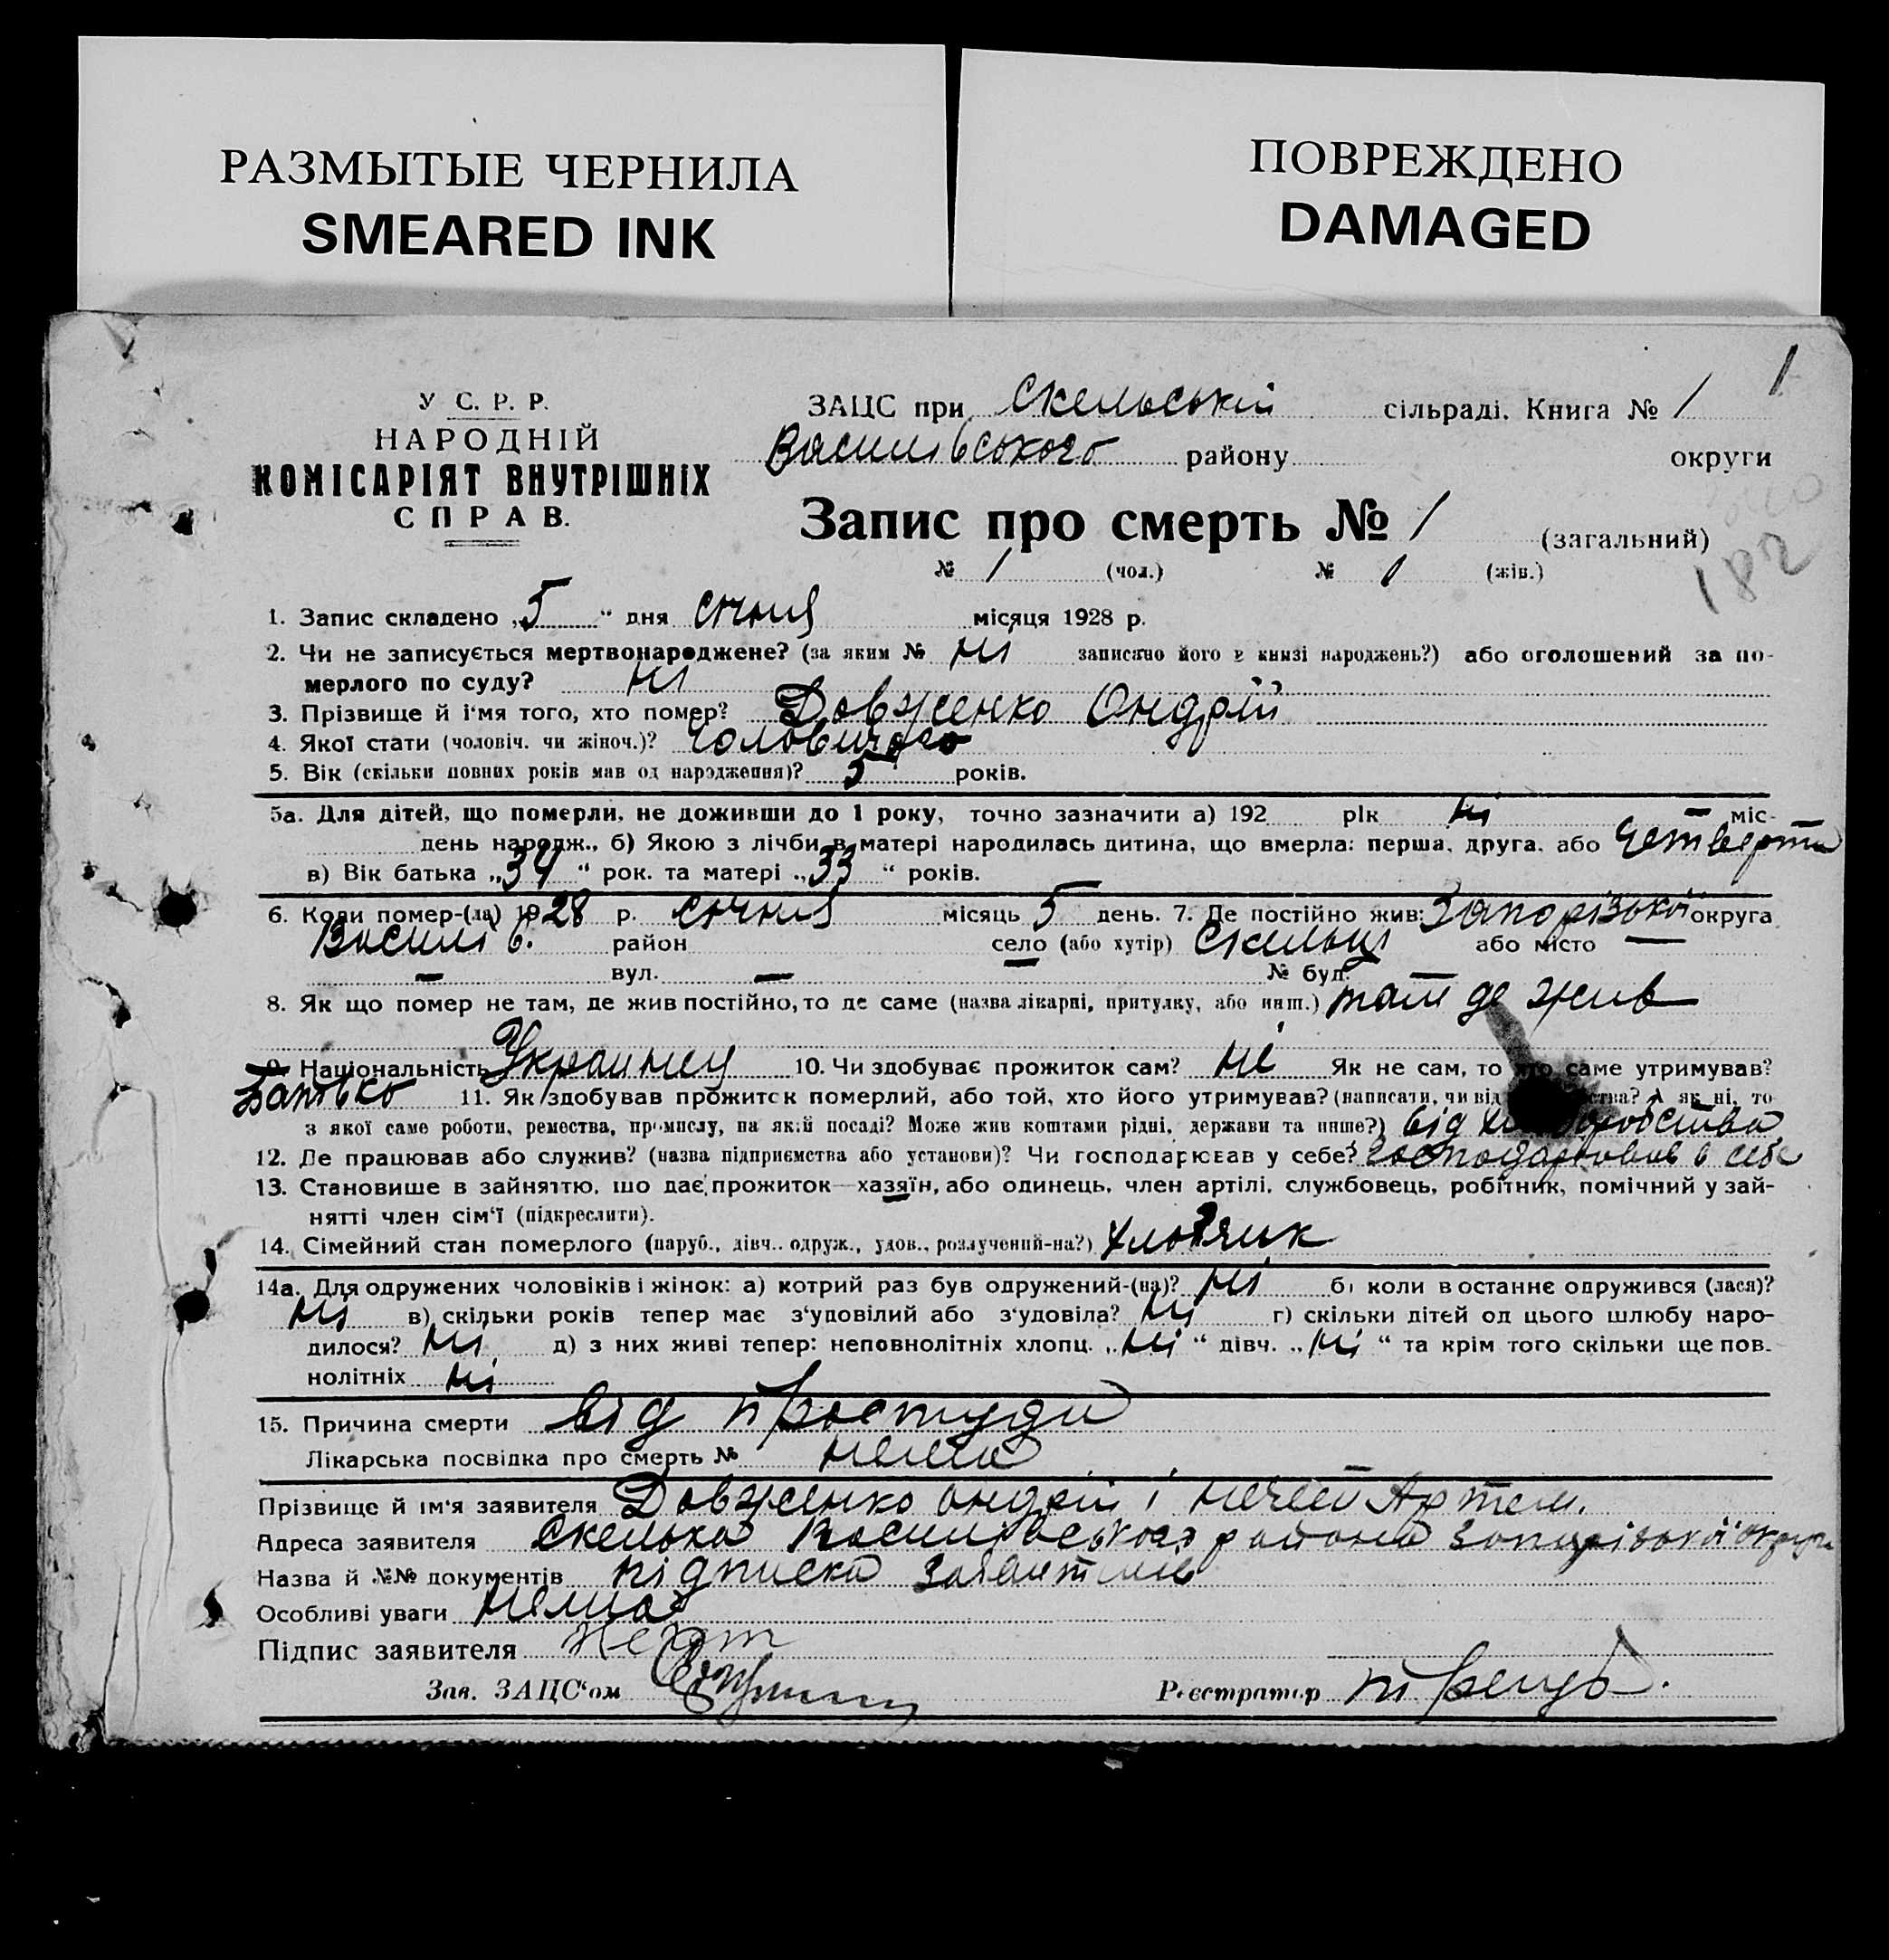 РАЗМЫТЫЕ ЧЕРНИЛА
SMEARED INK
ПОВРЕЖДЕНО
DAMAGED
1
У С. Р. Р.
НАРОДНІЙ
КОМІСАРІЯТ ВНУТРІШНІХ
СПРАВ.
ЗАЦС при Скельській сільраді. Книга № 1
Василівського району округи
Запис про смерть № 1 (загальний)
182
№ 1 (чол.) № (жін.)
1. Запис складено „5“ дня січня місяця 1928 р.
2. Чи не записується мертвонароджене? (за яким № ні записано його в книзі народжень?) або оголошений за по-
мерлого по суду? ні
3. Прізвище й ім'я того, хто помер? Довженко Ондрій
4. Якої стати (чоловіч. чи жіноч.)? чоловичого
5. Вік (скільки повних років мав од народження)? 5 років.
5а. Для дітей, що померли, не доживши до 1 року, точно зазначити а) 192 рік ні — міс-
день народж., б) Якою з лічби в матері народилась дитина, що вмерла: перша, друга, або четверта
в) Вік батька „34“ рок. та матері „33“ років.
6. Коли помер-(ла) 1928 р. січня місяць 5 день. 7. Де постійно жив: Запорізької округа
Василів. район село (або хутір) Скельці або місто —
— вул. — № буд. —
8. Як що помер не там, де жив постійно, то де саме (назва лікарні, притулку, або инш.) там де жив
9. Національність Украинец 10. Чи здобуває прожиток сам? ні Як не сам, то хто саме утримував?
Батько 11. Як здобував прожиток померлий, або той, хто його утримував? (написати, чи від ства? А як ні, то
з якої саме роботи, ремества, промислу, на якій посаді? Може жив коштами рідні, держави та инше?) від
12. Де працював або служив? (назва підприємства або установи)? Чи господарював у себе? господарював в себе
13. Становище в зайняттю, що дає прожиток—хазяїн, або одинець, член артілі, службовець, робітник, помічний у зай-
нятті член сім'ї (підкреслити).
14. Сімейний стан померлого (паруб., дівч., одруж., удов., розлучений-на?) хлопчик
14а. Для одружених чоловіків і жінок: а) котрий раз був одружений-(на)? ні б) коли востаннє одружився (лася)?
ні в) скільки років тепер має з'удовілий або з'удовіла? ні г) скільки дітей од цього шлюбу наро-
дилося? ні д) з них живі тепер: неповнолітніх хлопц. „ні“ дівч. „ні“ та крім того скільки ще пов-
нолітніх ні
15. Причина смерти від простуди
Лікарська посвідка про смерть № нема
Прізвище й ім'я заявителя Довженко Ондрій і Артем.
Адреса заявителя Скелька Василівського района Запорізької округи
Назва й №№ документів підписка
Особливі уваги нема
Підпис заявителя
Зав. ЗАЦС'ом Реєстратор